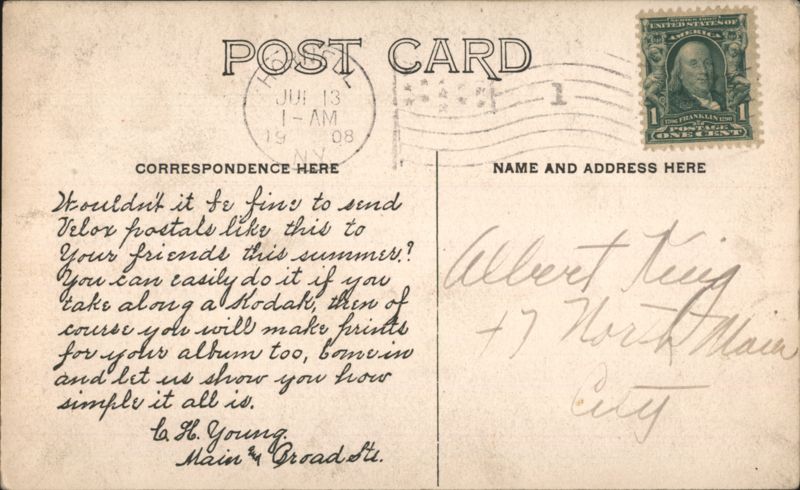 POST CARD
HORNELL
JUL 13
1-AM
1908
N.Y.
1
SERIES 1902
UNITED STATES OF
AMERICA
1 FRANKLIN 1
POSTAGE
ONE CENT
CORRESPONDENCE HERE
Wouldn't it be fine to send
Velox postals like this to
Your friends this summer?
You can easily do it if you
take along a Kodak, then of
course you will make prints
for your album too, Come in
and let us show you how
simple it all is.
C. H. Young.
Main and Broad Sts.
NAME AND ADDRESS HERE
Albert King
47 North Main
City